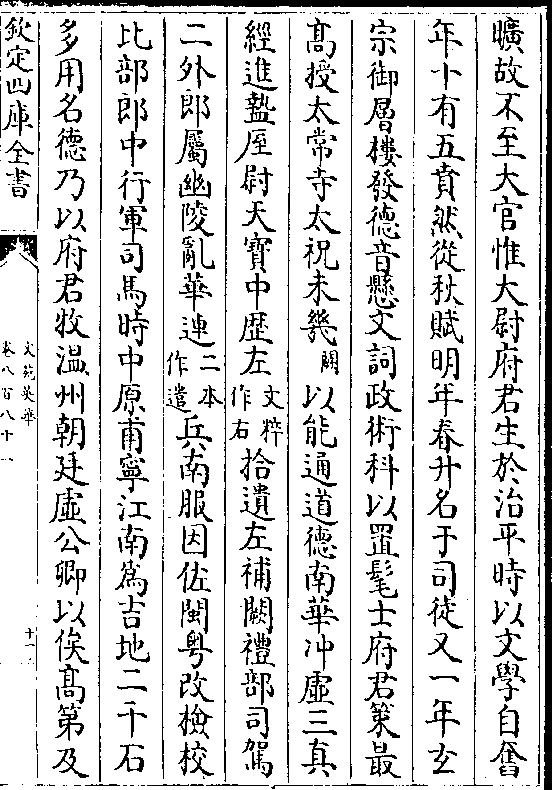 曠故不至大官惟大尉府君生於治平時以文學自奮
年十有五賁然從秋賦明年春升名于司徒又一年玄
宗御層樓發德音懸文詞政術科以置髦士府君策最
髙授太常寺太祝未幾闕以能通道德南華冲虚三真
經進盩厔尉天寳中歴左文粹作右拾遺左補闕禮部司駕
二外郎屬幽陵亂華連二本作遣兵南服因佐閩粤改檢校
比部郎中行軍司馬時中原甫寧江南爲吉地二千石
多用名德乃以府君牧温州朝廷虚公卿以俟髙第及
欽定四庫全書
文苑英華
卷八百八十一
十一